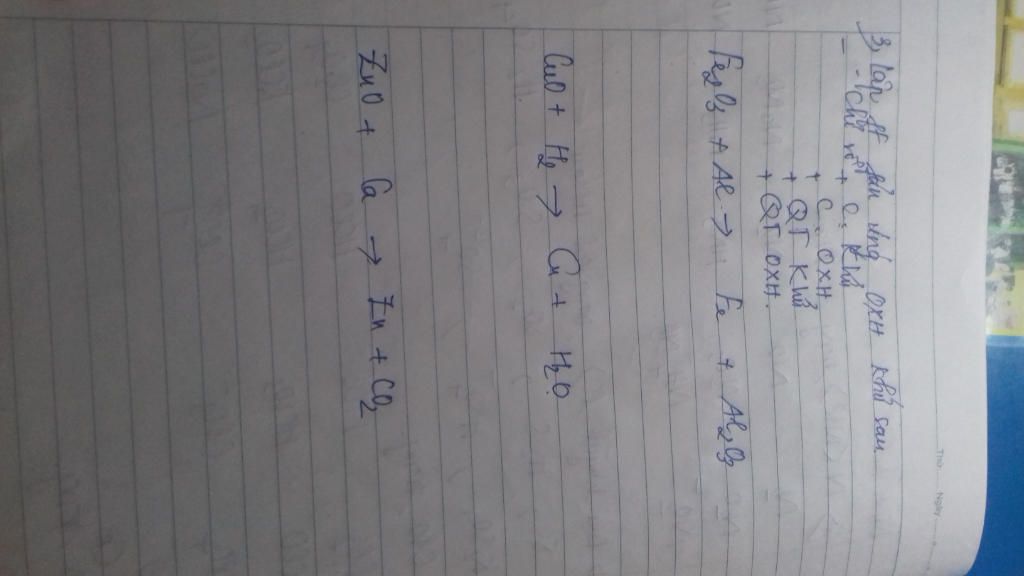 Thứ Ngày
3, Lập pt phản ứng OXH khử sau
- Chỉ rõ + C. Khử
+ C. OXH
+ QT Khử
+ QT OXH.
Fe2O3 + Al → Fe + Al2O3
CuO + H2 → Cu + H2O
ZnO + Ca → Zn + CO2